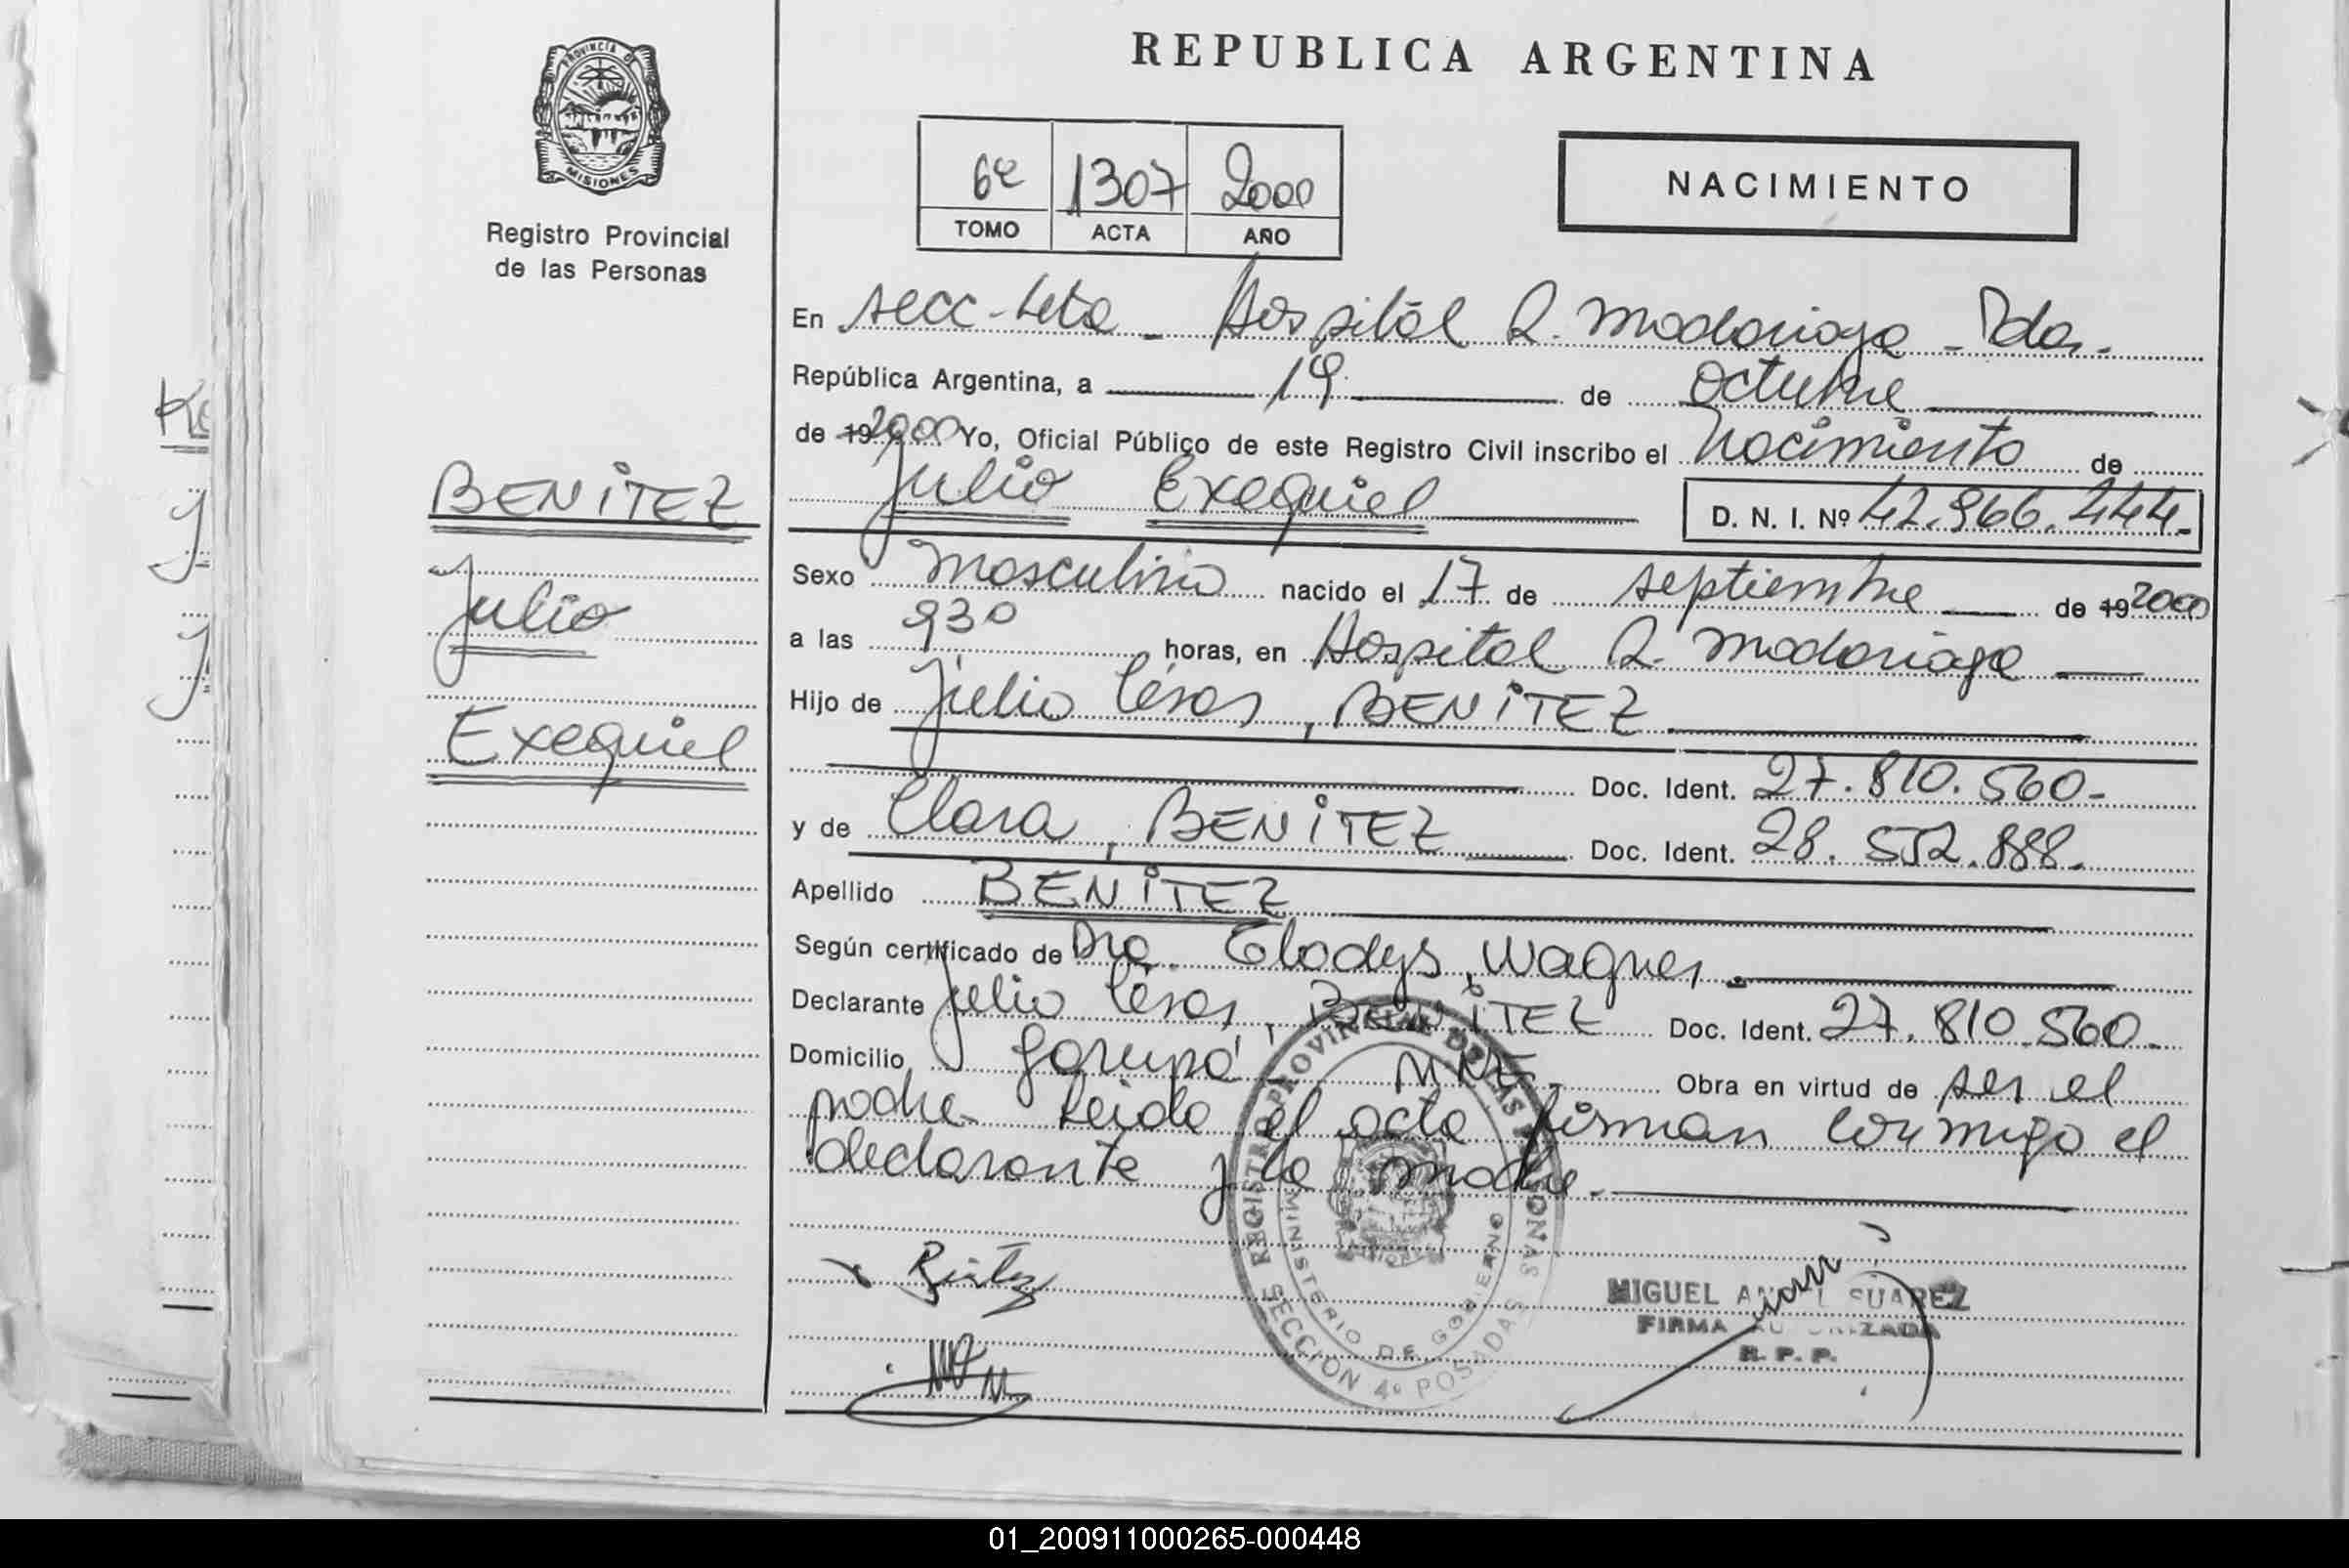 PROVINCIA DE
MISIONES
Registro Provincial
de las Personas
REPUBLICA ARGENTINA
6º 1307 2000
TOMO ACTA AÑO
NACIMIENTO
BENITEZ
Julio
Exequiel
En secc. 4ta - Hospital R. Madariaga - Pdas.
República Argentina, a 19 de octubre
de 19 2000 Yo, Oficial Público de este Registro Civil inscribo el Nacimiento de
Julio Exequiel D. N. I. Nº 42.966.444.-
Sexo masculino nacido el 17 de septiembre de 19 2000
a las 930 horas, en Hospital R. Madariaga
Hijo de Julio César, BENITEZ
Doc. Ident. 27.810.560-
y de Clara, BENITEZ Doc. Ident. 28.552.888.
Apellido BENITEZ
Según certificado de Dra. Gladys, Wagner.
Declarante Julio César, BENITEZ Doc. Ident. 27.810.560-
Domicilio Garupá - MNES. Obra en virtud de ser el
padre. Leida el acta firman conmigo el
declarante y la madre.
REGISTRO PROVINCIAL DE LAS PERSONAS
MINISTERIO DE GOBIERNO
SECCION 4º POSADAS
MIGUEL ANGEL SUAREZ
FIRMA AUTORIZADA
R. P. P.
01_200911000265-000448